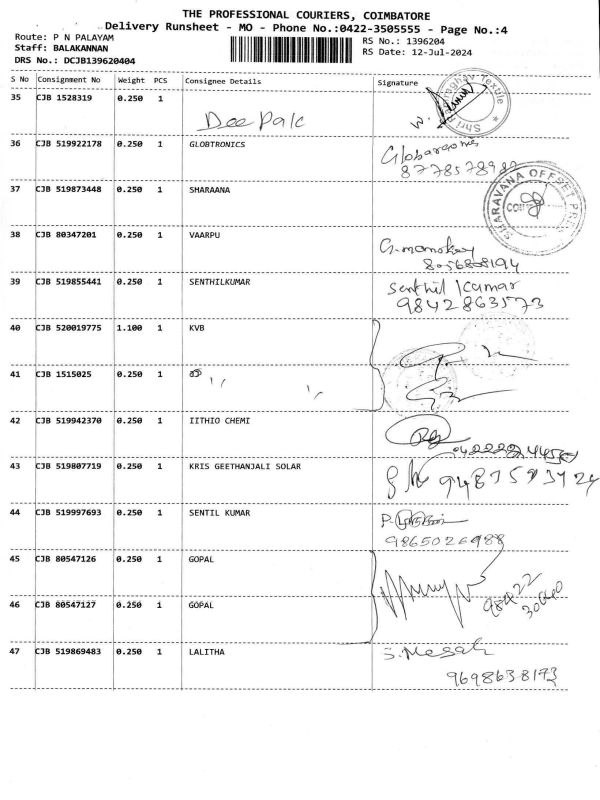 THE PROFESSIONAL COURIERS, COIMBATORE
Delivery Runsheet - MO - Phone No.:0422-3505555 - Page No.:4
Route: P N PALAYAM
RS No.: 1396204
Staff: BALAKANNAN
RS Date: 12-Jul-2024
DRS No.: DCJB139620404
S No Consignment No Weight PCS Consignee Details Signature
35 CJB 1528319 0.250 1
Deepak
36 CJB 519922178 0.250 1 GLOBTRONICS
37 CJB 519873448 0.250 1 SHARAANA
SHARAVANA OFFSET
38 CJB 80347201 0.250 1 VAARPU
8056808194
39 CJB 519855441 0.250 1 SENTHILKUMAR
Senthil Kumar
9842863573
40 CJB 520019775 1.100 1 KVB
41 CJB 1515025 0.250 1
42 CJB 519942370 0.250 1 IITHIO CHEMI
43 CJB 519807719 0.250 1 KRIS GEETHANJALI SOLAR
44 CJB 519997693 0.250 1 SENTIL KUMAR
9865026988
45 CJB 80547126 0.250 1 GOPAL
46 CJB 80547127 0.250 1 GOPAL
47 CJB 519869483 0.250 1 LALITHA
9698638173